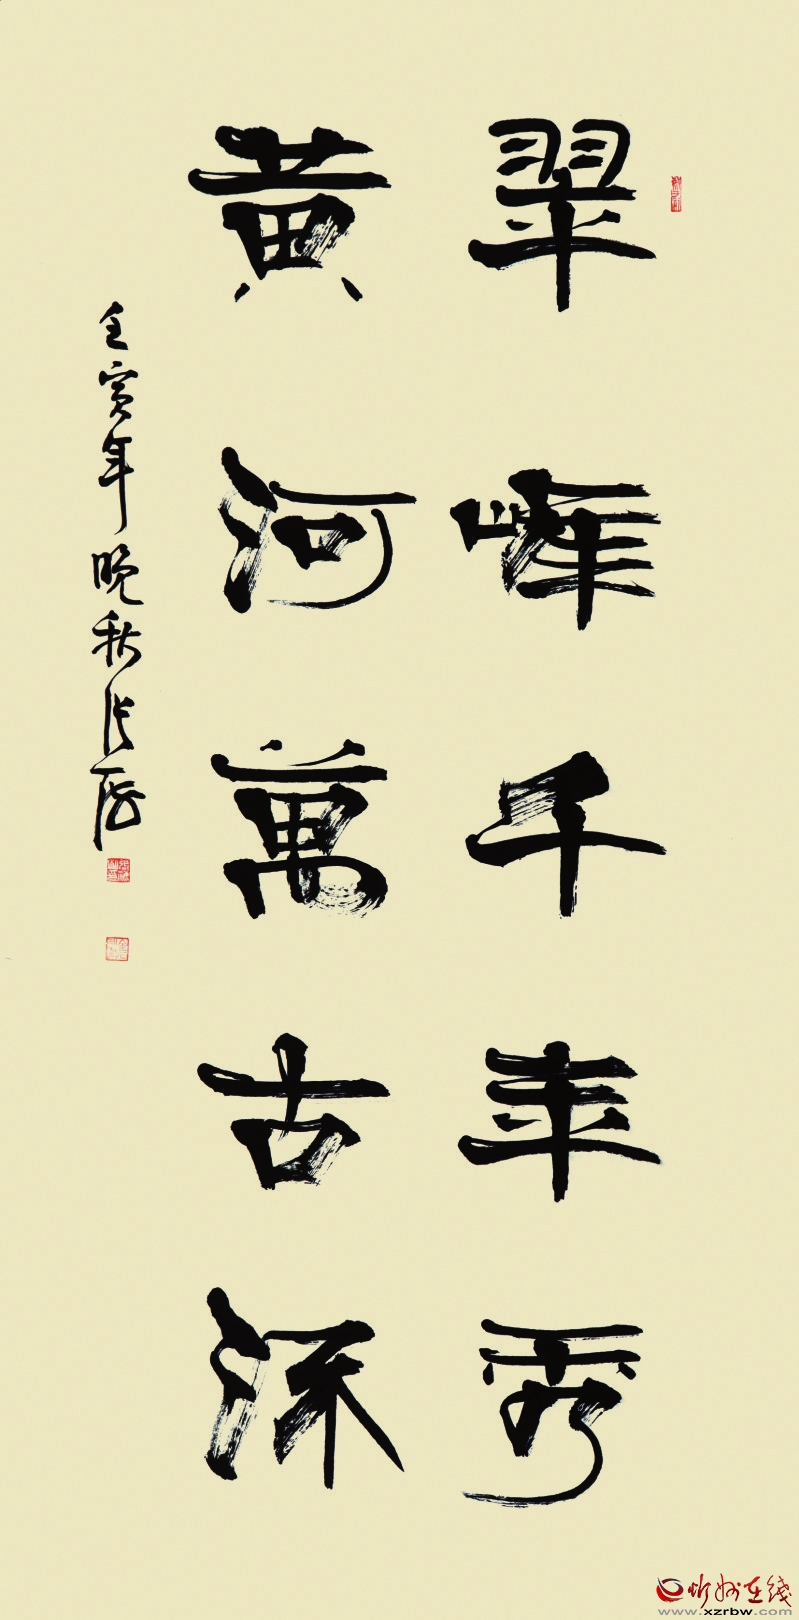 翠峰千年秀
黄河萬古深
壬寅年晚秋张
忻州在线
www.xzrbw.com